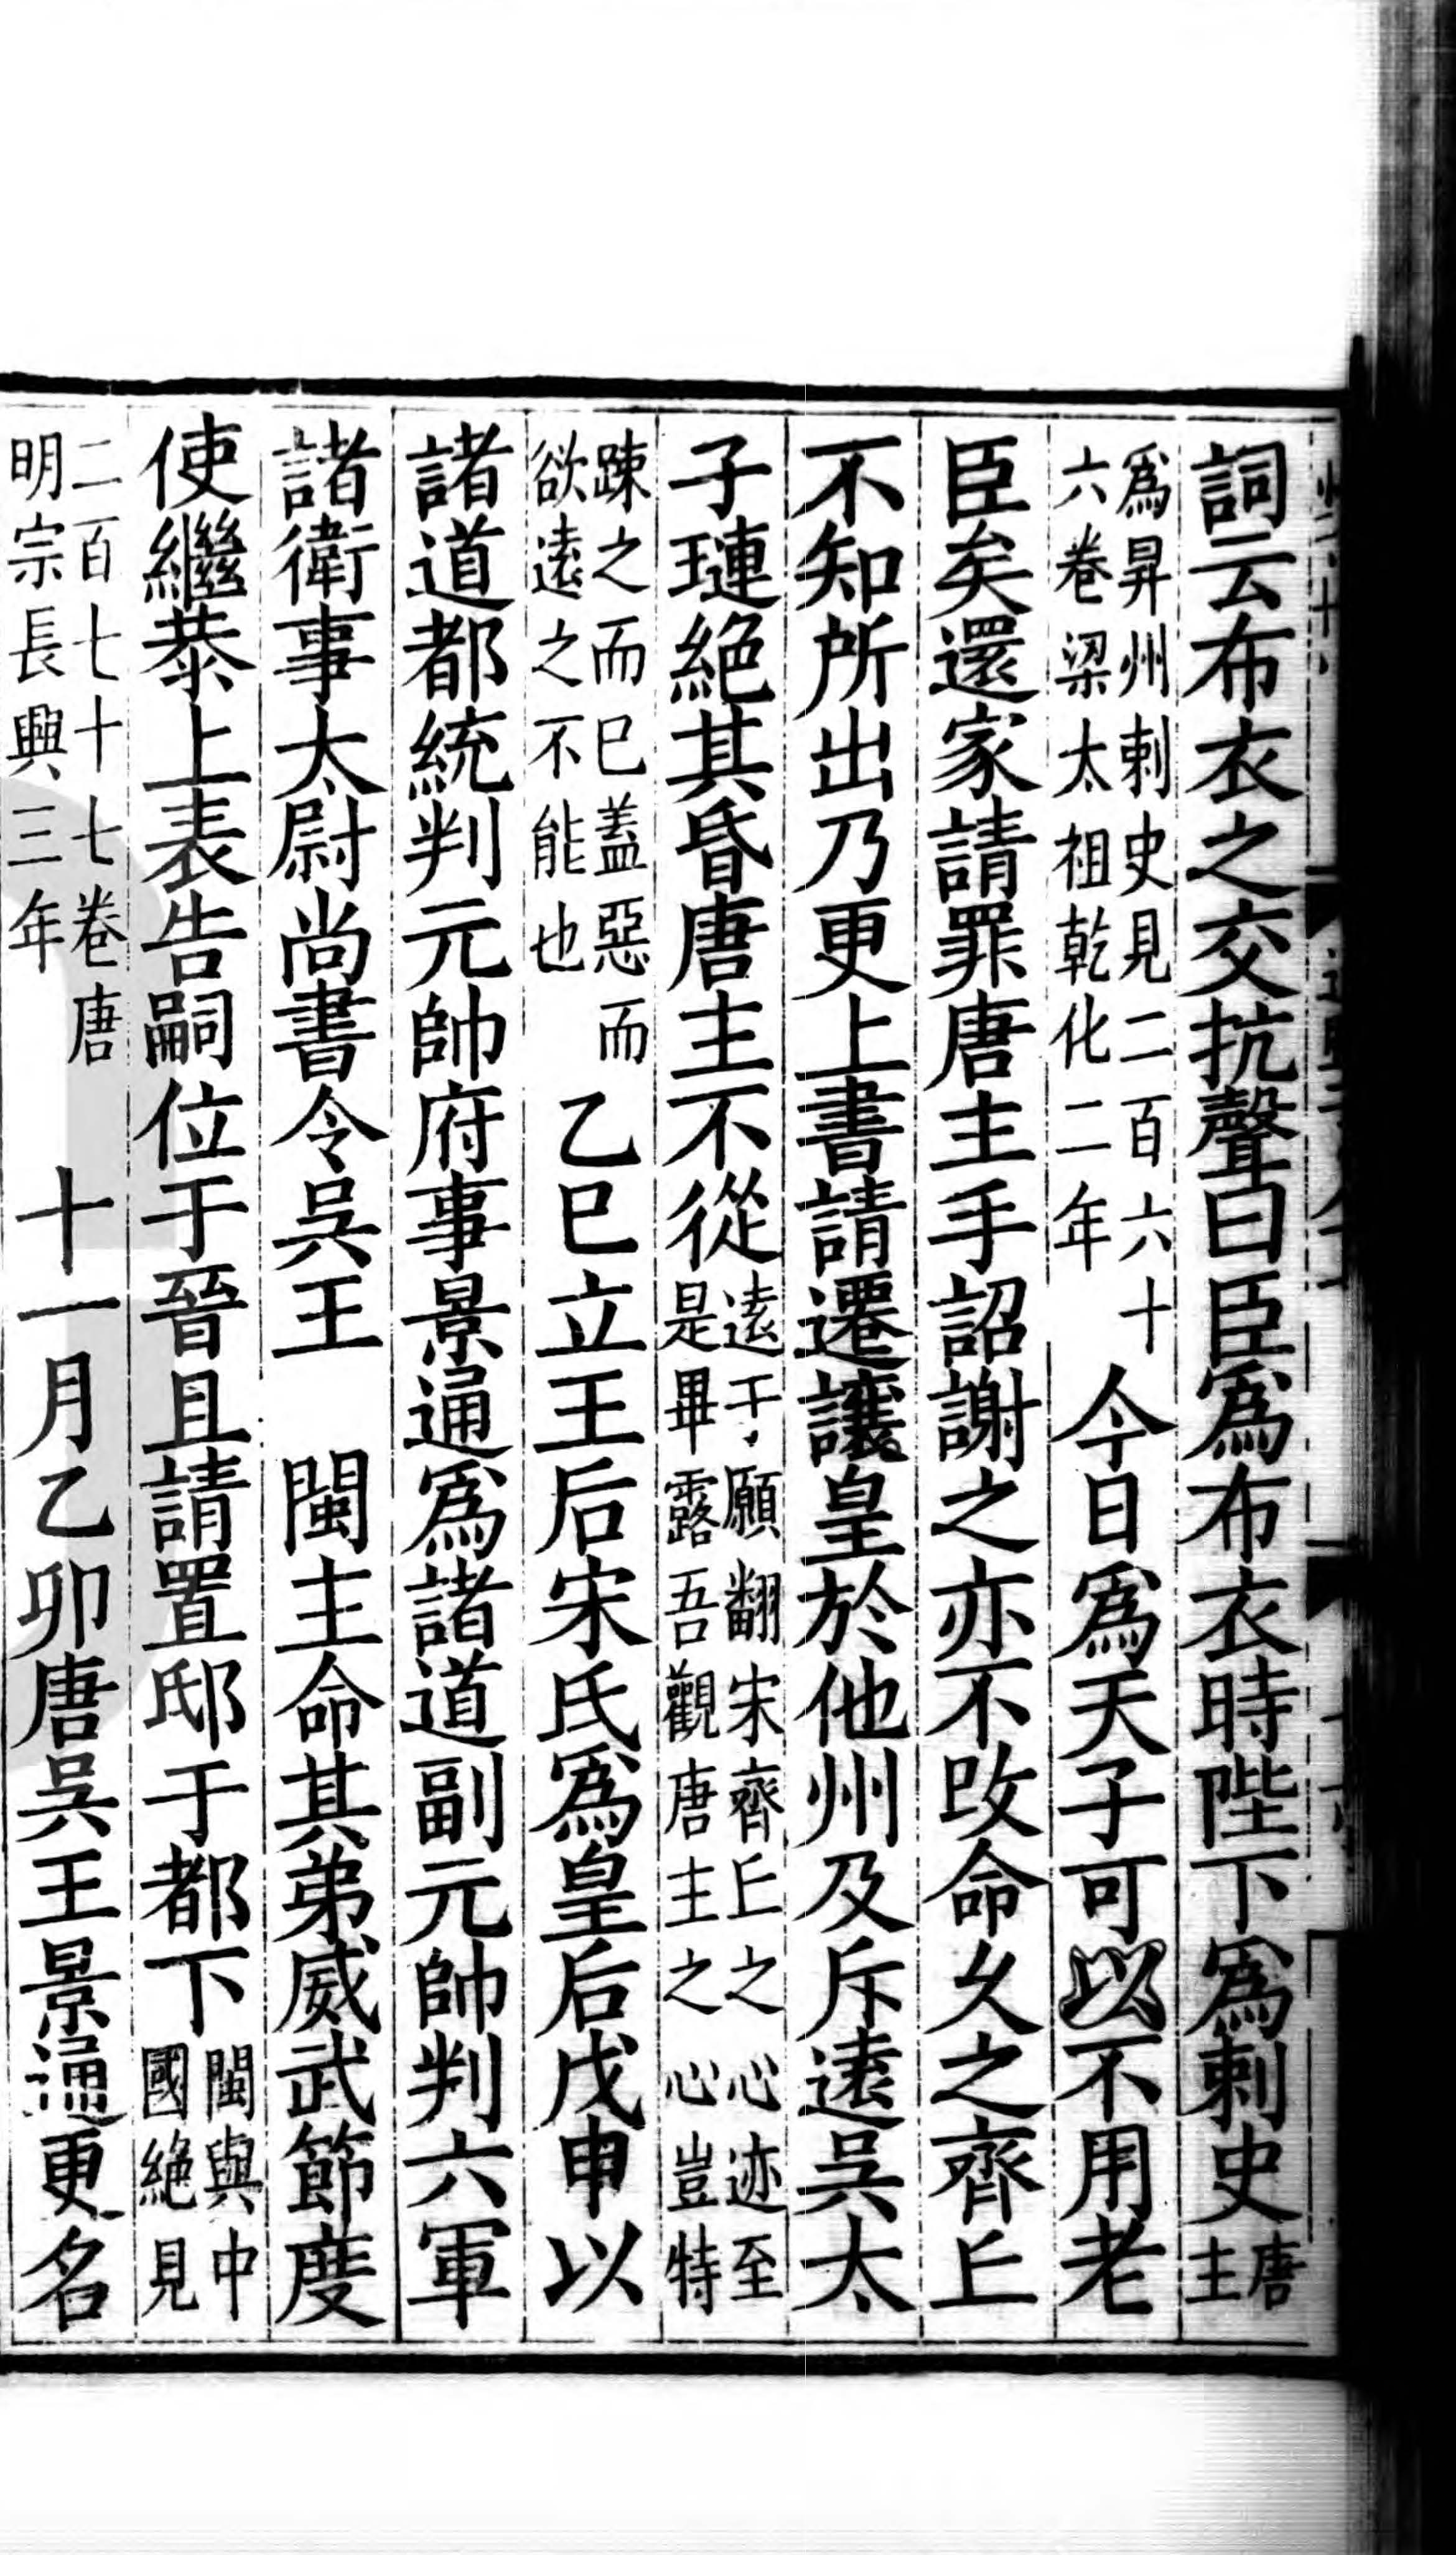 詞云布衣之交抗聲曰臣爲布衣時陛下爲刺史唐主
爲昇州刺史見二百六十六卷梁太祖乾化二年今日爲天子可以不用老
臣矣還家請罪唐主手詔謝之亦不改命久之齊丘
不知所出乃更上書請遷讓皇於他州及斥遠吳太
子璉絶其昏唐主不從遠于願翻宋齊丘之心迹至是畢露吾觀唐主之心豈特
踈之而已蓋惡而欲遠之不能也乙巳立王后宋氏爲皇后戊申以
諸道都統判元帥府事景通爲諸道副元帥判六軍
諸衛事太尉尚書令吳王　閩主命其弟威武節度
使繼恭上表告嗣位于晉且請置邸于都下閩與中國絶見
二百七十七卷唐明宗長興三年　十一月乙卯唐吳王景通更名